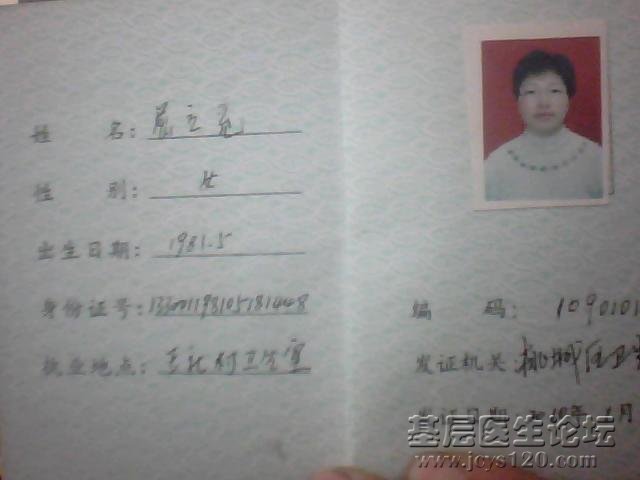 姓 名:
性 别: 女
出生日期: 1981.5
身份证号:
执业地点: 王 村卫生室
编 码: 1090101
发证机关: 桃城区卫
发证日期 年 1月
基层医生论坛
www.jcys120.com